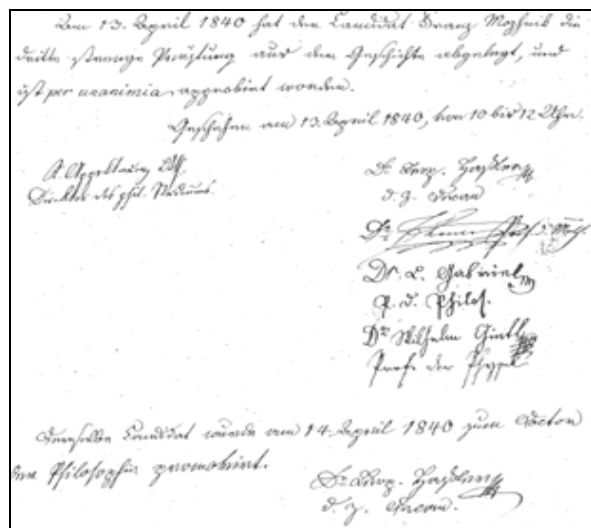 Am 13. April 1840 hat der Candidat Franz Mozhnik die
dritte strenge Prüfung aus der Geschichte abgelegt, und
ist per unanimia approbirt worden.
Geschehen am 13. April 1840, von 10 bis 12 Uhr.
A. Appeltauer
Direktor des phil. Studiums.
Dr. Leop. Haßler
d. z. Decan
Dr. Prof. d. Math.
Dr. L. Gabriel
P. d. Philos.
Dr. Wilhelm Gintl
Prof. der Physik
Derselbe Candidat wurde am 14. April 1840 zum Doctor
der Philosophie promovirt.
Dr. Leop. Haßler
d. z. Decan.